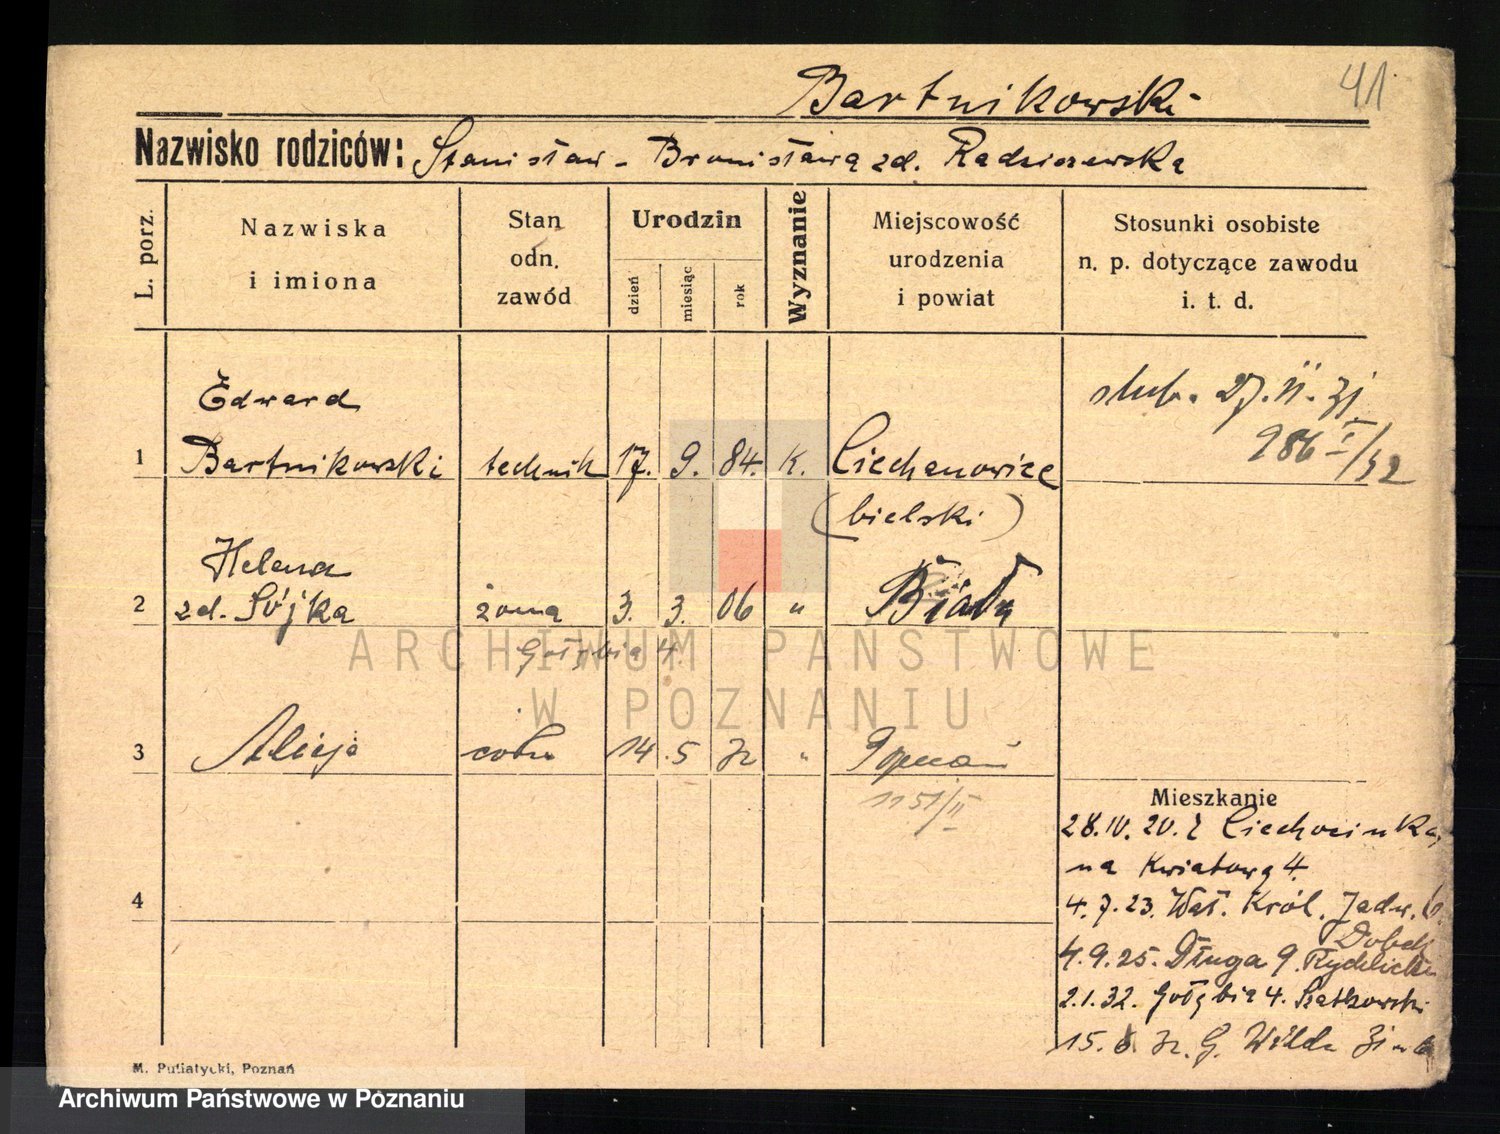 41
Bartnikowski
Nazwisko rodziców: Stanisław - Bronisława zd. Radziszewska
L. porz.
Nazwiska
i imiona
Stan
odn.
zawód
Urodzin
dzień
miesiąc
rok
Wyznanie
Miejscowość
urodzenia
i powiat
Stosunki osobiste
n. p. dotyczące zawodu
i. t. d.
Edward
1 Bartnikowski technik 17. 9. 84. K. Ciechanowice
(bielski)
ślub. 27. II. 31
986 I/32
Helena
2 zd. Sójka żona 3. 3. 06 " Biała
Gołębia 4.
3 Alicja córka 14 5 32 " Poznań
1151/II
4
Mieszkanie
28. IV. 20. z Ciechocinka,
na Kwiatową 4.
4. 7. 23. Wał. Król. Jadw. 6.
4. 9. 25. Długa 9.
2. 1. 32. Gołębia 4.
15. 32. G. Wilda
M. Putiatycki, Poznań
ARCHIWUM PAŃSTWOWE
W POZNANIU
Archiwum Państwowe w Poznaniu